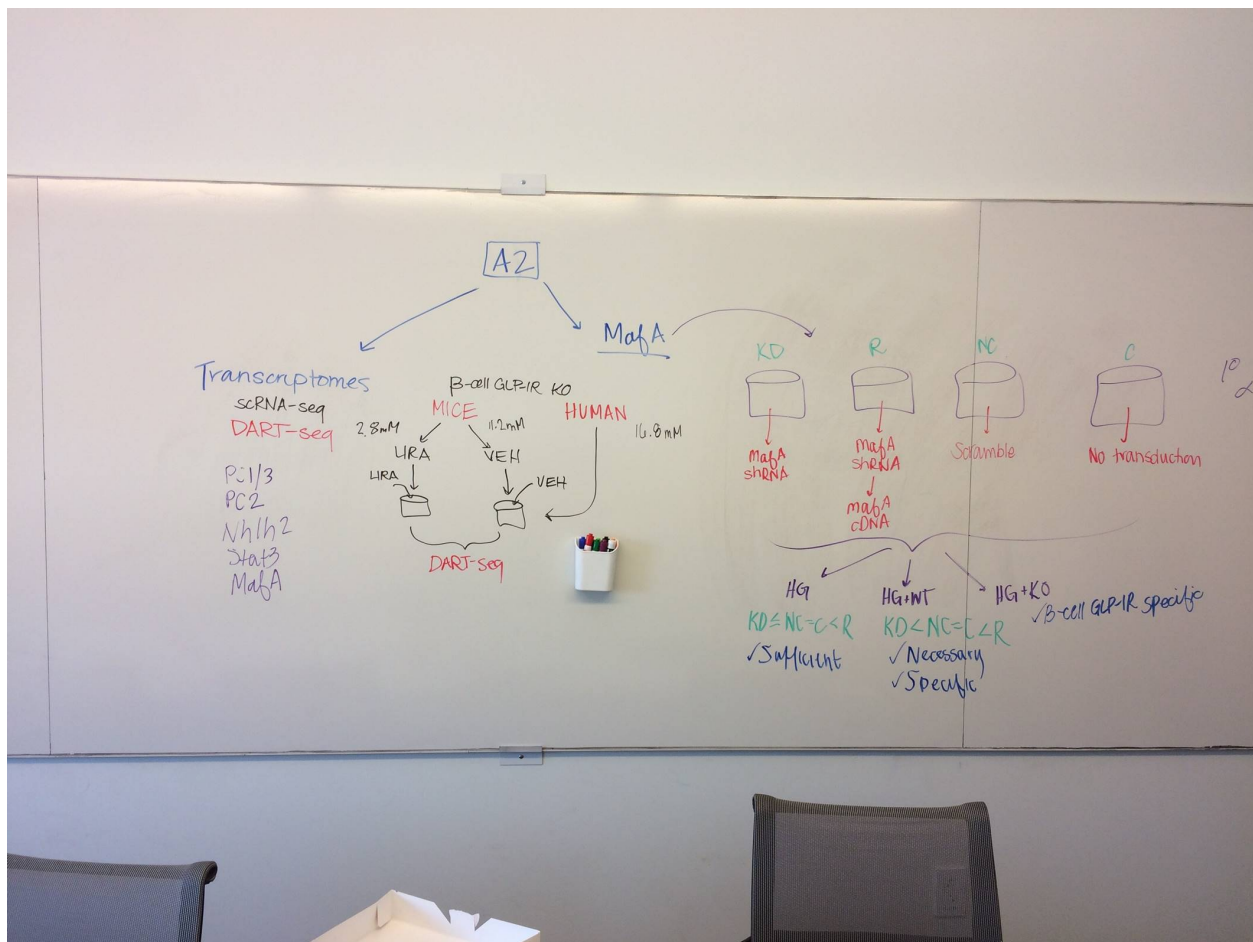 A2
MafA
Transcriptomes
scRNA-seq
DART-seq
PC1/3
PC2
Nhlh2
Stat3
MafA
β-cell GLP-1R KO
MICE
HUMAN
2.8mM
11.2mM
16.8mM
LIRA
VEH
LIRA
VEH
DART-seq
KD
R
NC
C
MafA
shRNA
MafA
shRNA
MafA
cDNA
Scramble
No transduction
HG
KD≤NC=C<R
✓Sufficient
HG+WT
KD<NC=C<R
✓Necessary
✓Specific
HG+KO
✓β-cell GLP-1R specific
1°